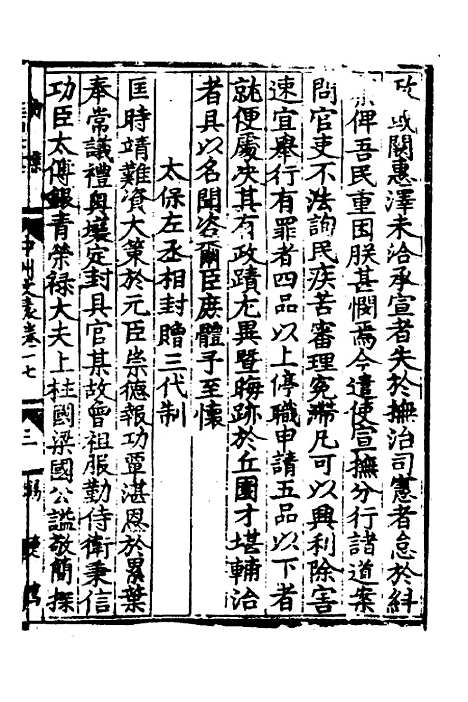 政或闕惠澤未洽承宣者失於撫治司憲者怠於糾
俾吾民重困朕甚憫焉今遣使宣撫分行諸道案
問官吏不法詢民疾苦審理冤滯凡可以興利除害
速宜舉行有罪者四品以上停職申請五品以下者
就便處决其有政蹟尤異暨晦跡於丘園才堪輔治
者具以名聞咨爾臣庶體予至懷
太保左丞相封贈三代制
匡時靖難資大策於元臣崇德報功覃湛恩於累葉
奉常議禮與壤定封具官某故曾祖服勤侍衛秉信
功臣太傅銀青榮祿大夫上柱國梁國公謚敬簡探
中州文表卷一七
三